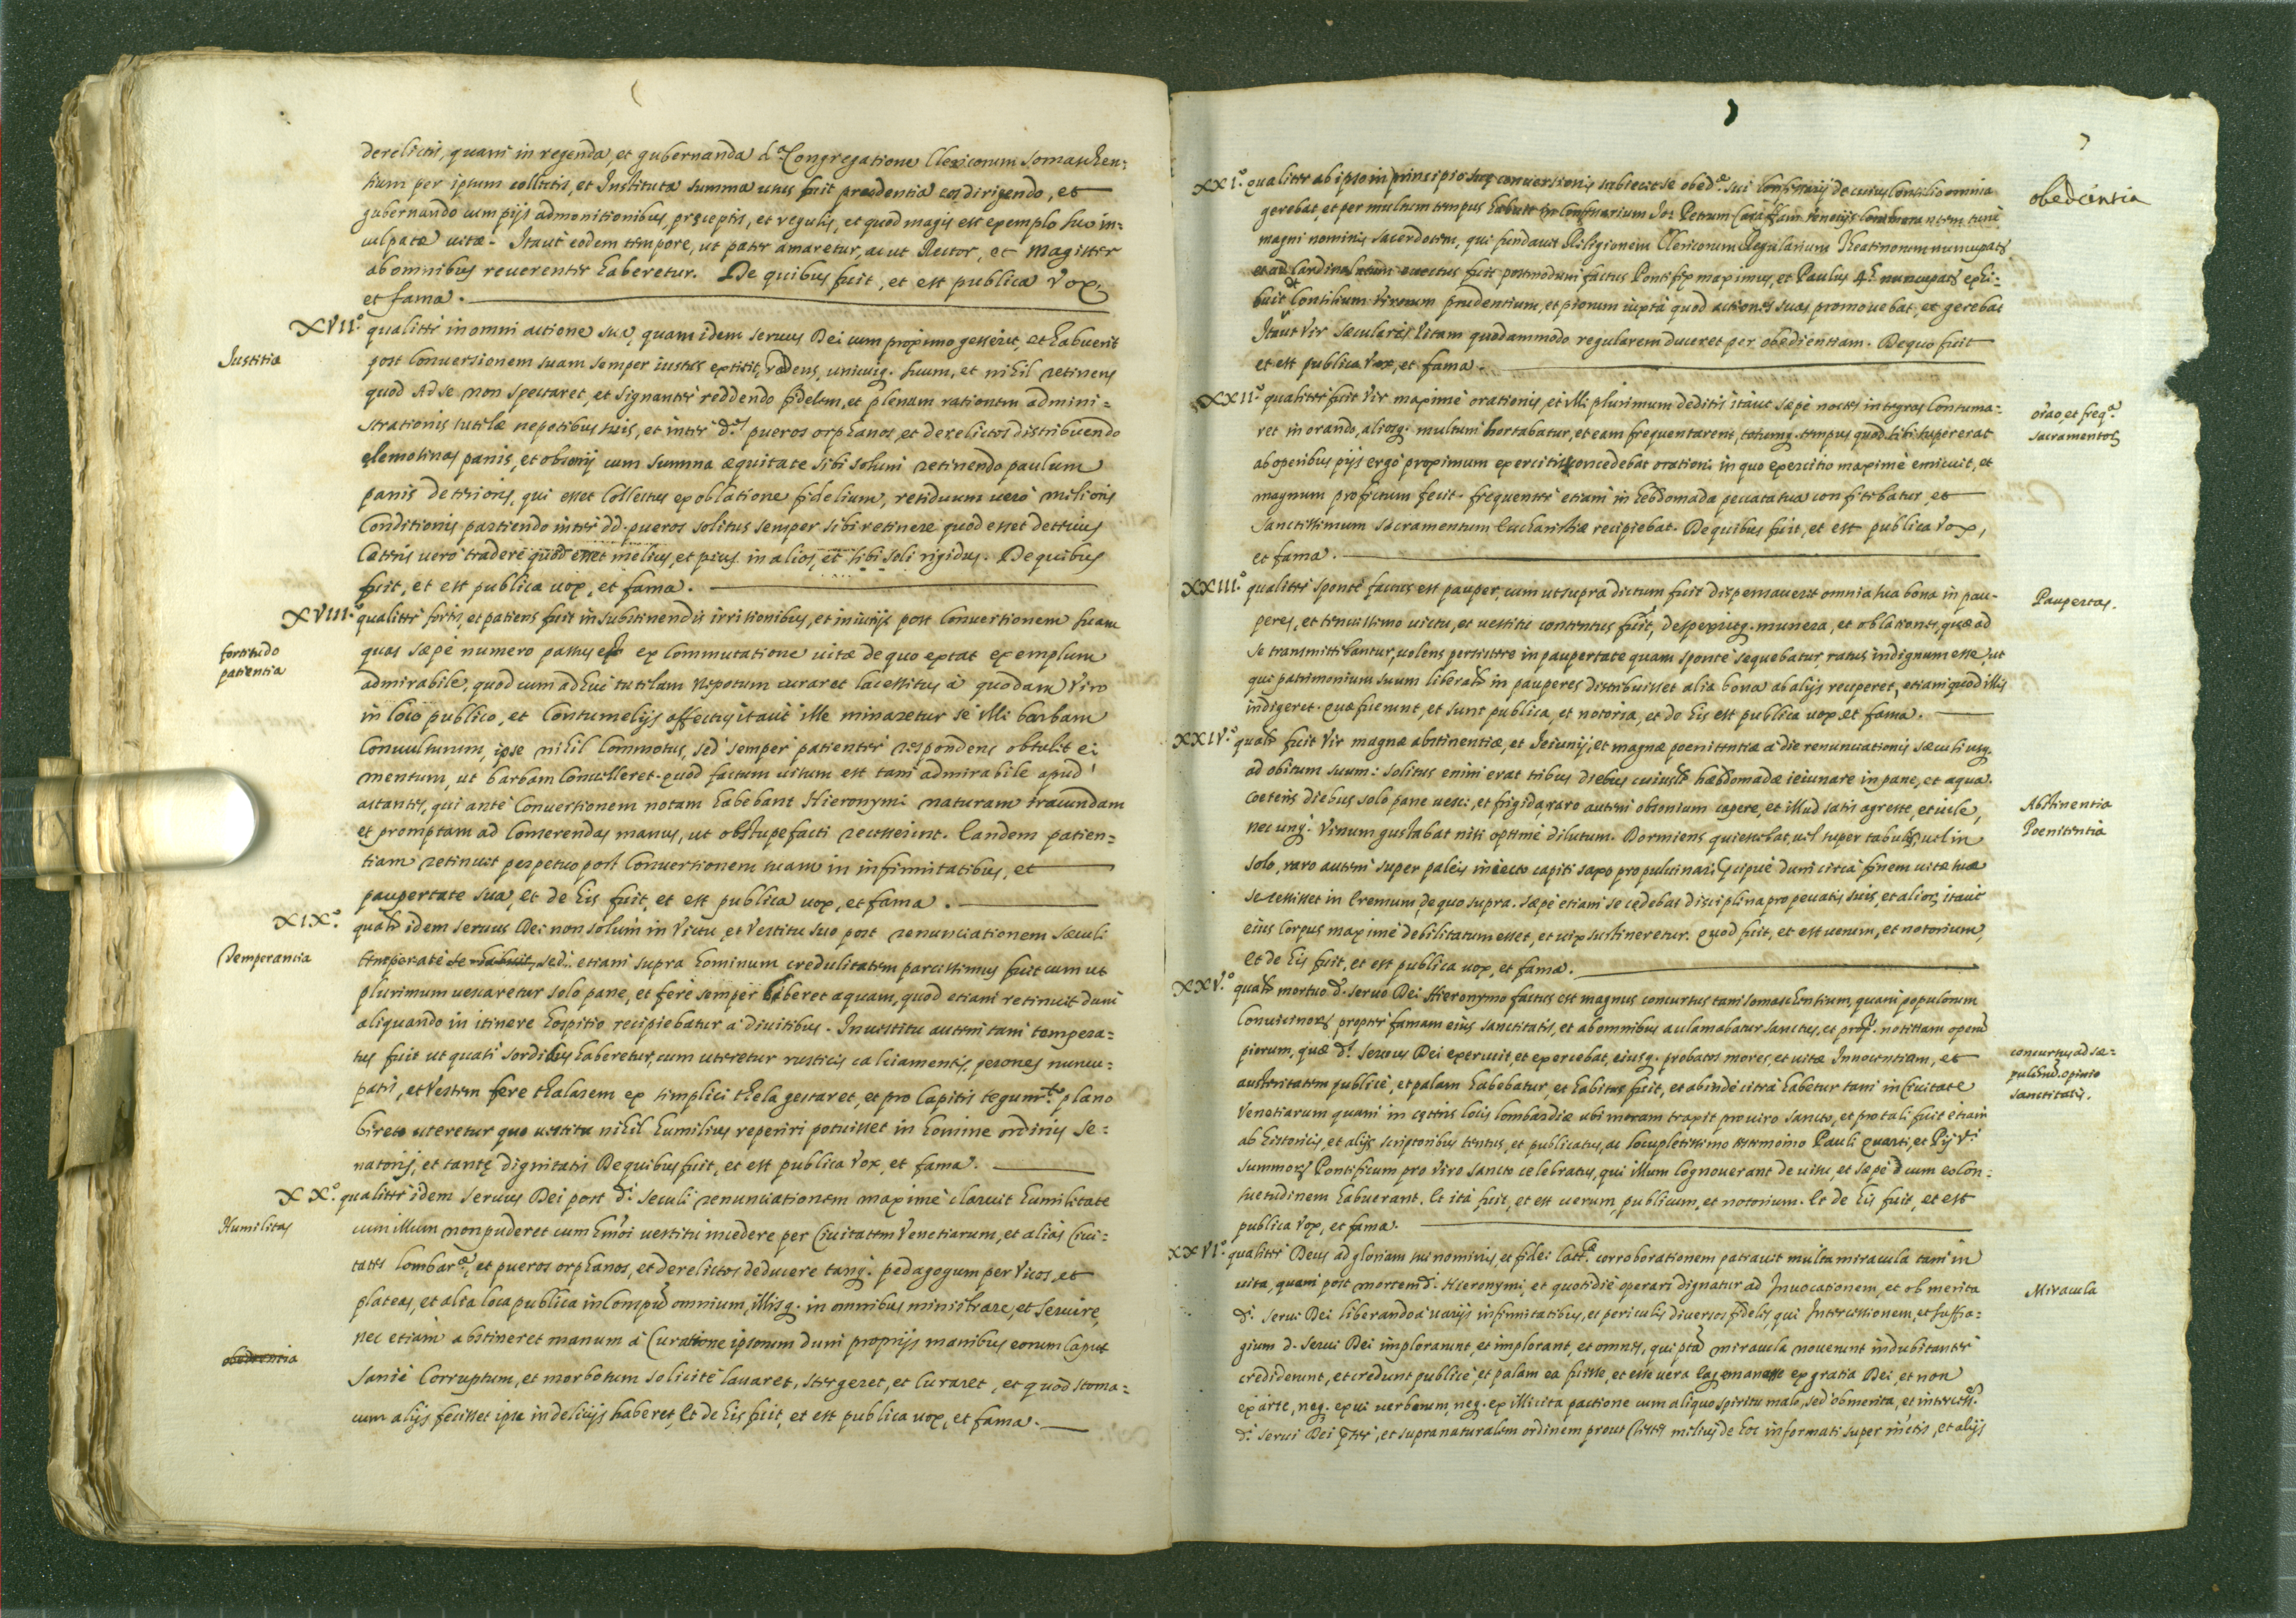 derelictis, quam in regenda, et gubernanda d.ª Congregatione Clericorum Somaschen=
sium per ipsum collectis, et Instituta summa usus fuit prudentia eos dirigendo, et
gubernando cum pijs admonitionibus, pręceptis, et regulis, et quod magis est exemplo suo in=
culpatæ uitæ. Itaut eodem tempore, ut pater amaretur, ac ut Rector, et Magister
ab omnibus reuerenter haberetur. De quibus fuit, et est publica vox,
et fama.
XVII.º qualiter in omni actione sua, quam idem seruus Dei cum proximo gesserit, et habuerit
Justitia
post Conuersionem suam semper iustus extitit, redens, unicuiq. suum, et nihil retinens
quod ad se non spectaret, et signanter reddendo fidelem, et plenam rationem admini=
strationis tutelæ nepotibus suis, et inter d.ºˢ pueros orphanos, et derelictos distribuendo
elemosinas panis, et obsonij cum summa æquitate sibi solum retinendo paulum
panis deterioris, qui esset Collectus ex oblatione fidelium, residuum uero melioris
Conditionis partiendo inter dd. pueros solitus semper sibi retinere quod esset deterius
Cæteris uero tradere quod esset melius, et pius in alios, et sibi soli rigidus. De quibus
fuit, et est publica uox, et fama.
XVIII.º qualiter fortis, et patiens fuit in substinendis irrisionibus, et iniurijs post Conuersionem suam
fortitudo
patientia
quas sæpe numero passus est ex commutatione uitæ de quo extat exemplum
admirabile, quod cum adhuc tutelam Nepotum curaret lacessitus à quodam Viro
in loco publico, et Contumelijs affectus itaut ille minaretur se illi barbam
Conuulsurum, ipse nihil Commotus, sed semper patienter respondens obtulit ei
mentum, ut barbam Conuelleret. quod factum uisum est tam admirabile apud
astantes, qui ante Conuersionem notam habebant Hieronymi naturam iracundam
et promptam ad Comerendas manus, ut obstupefacti recesserint. Eandem patien=
tiam retinuit perpetuo post Conuersionem suam in infirmitatibus, et
paupertate sua, et de his fuit, et est publica uox, et fama.
XIX.º qualr idem seruus Dei non solum in Victu, et Vestitu suo post renunciationem sæculi
Temperantia
temperate se habuit, sed etiam supra hominum credulitatem parcissimus fuit cum ut
plurimum uescaretur solo pane, et fere semper biberet aquam, quod etiam retinuit dum
aliquando in itinere hospitio recipiebatur à diuitibus. In uestitu autem tam tempera=
tus fuit ut quasi sordidus haberetur, cum uteretur rusticis calciamentis, perones nuncu=
patis, et Vestem fere thalarem ex simplici thela gestaret, et pro Capitis tegum.ᵗᵒ plano
bireto uteretur quo uestitu nihil humilius reperiri potuisset in homine ordinis se=
natorij, et tantę dignitatis De quibus fuit, et est publica vox, et fama.
XX.º qualiter idem seruus Dei post d.ᵃᵐ seculi renunciationem maxime claruit humilitate
Humilitas
cum illum non puderet cum hmõi uestitu incedere per Ciuitatem Venetiarum, et alias Ciui=
tates Lombar.ᵃᵉ, et pueros orphanos, et derelictos deducere tanq. pedagogum per Vicos, et
plateas, et alia loca publica in Conspectu omnium, illisq. in omnibus ministrare, et seruire,
nec etiam abstineret manum à Curatione ipsorum dum proprijs manibus eorum Caput
obedientia
sanie Corruptum, et morbosum solicite lauaret, stergeret, et Curaret, et quod stoma=
cum alijs fecisset ipse in delicijs haberet, Et de his fuit, et est publica uox, et fama.
7
XXI.º qualiter ab ipso in principio suę conuersionis subiecit se obed.ᵉ sui Confessarij de cuius Consilio omnia
obediẽntia
gerebat, et per multum tempus habuit in Confessarium Jo: Petrum Carafam Venetijs commorantem tunc
magni nominis sacerdotem, qui fundauit Religionem Clericorum Regularium Theatinorum nuncupat.
et ad Cardinalatum euectus fuit postmodum factus Pontifex maximus, et Paulus 4.ˢ nuncupatˢ exhi=
buit et Consilium Virorum prudentium, et piorum iuxta quod actiones suas promouebat, et gerebat
Itaut Vir sæcularis Vitam quodammodo regularem duceret per obedientiam. De quo fuit
et est publica Vox, et fama.
XXII.º qualiter fuit Vir maxime orationis, et illi plurimum deditus itaut sæpe noctes integras Consuma=
orão, et freq.ᵃ
sacramentorˣ
ret in orando, aliosq. multum hortabatur, et eam frequentarent, totumq. tempus quod sibi supererat
ab operibus pijs ergo proximum exercitis concedebat orationi, in quo exercitio maxime emicuit, et
magnum profectum fecit. frequenter etiam in hebdomada peccata sua confitebatur, et
Sanctissimum Sacramentum Eucharistiæ recipiebat. De quibus fuit, et est publica Vox,
et fama.
XXIII.º qualiter sponte factus est pauper, cum ut supra dictum fuit dispensauerit omnia sua bona in pau-
Paupertas.
peres, et tenuissimo uictu, et uestitu contentus fuit, despexitq. munera, et oblationes, quæ ad
se transmittebantur, uolens persistere in paupertate quam sponte sequebatur, ratus indignum esse, ut
qui patrimonium suum liberalr in pauperes distribuisset alia bona ab alijs reciperet, etiam quod illis
indigeret. Quæ fuerunt, et sunt publica, et notoria, et de his est publica uox et fama.
XXIV.º qualr fuit Vir magnæ abstinentiæ, et Jeiunij, et magnæ poenitentiæ à die renunciationis sæculi usq.
ad obitum suum: solitus enim erat tribus diebus cuiuslt hæbdomadæ ieiunare in pane, et aqua.
Abstinentia
Poenitentia
Coeteris diebus solo pane uesci, et frigida, raro autem obsonium capere, et illud satis agreste, et uile,
nec unq. Vinum gustabat nisi optime dilutum. Dormiens quiescebat, uel super tabulis, uel in
solo, raro autem super paleis iniecto capiti saxo pro puluinari, pręcipue dum circa finem uitæ suæ
secessisset in Eremum, de quo supra. sæpe etiam se cędebat disciplina pro peccatis suis, et aliorˣ itaut
eius Corpus maxime debilitatum esset, et uix sustineretur. Quod fuit, et est uerum, et notorium,
Et de his fuit, et est publica uox, et fama.
XXV.º qualr mortuo d. seruo Dei Hieronymo factus est magnus concursus tam Somaschensium, quam populorum
Conuicinorˣ propter famam eius sanctitatis, et ab omnibus aclamabatur sanctus, et propt. notitiam operũ
concursus ad se=
pulchrũ. opinio
sanctitatis.
piorum, quæ d.ˢ seruus Dei exercuit, et exercebat, eiusq. probatos mores, et uitæ Innocentiam, et
austeritatem publice, et palam habebatur, et habitus fuit, et abinde citra habetur tam in Ciuitate
Venetiarum quam in cęteris locis Lombardiæ ubi moram traxit pro uiro Sancto, et pro tali fuit etiam
ab historicis, et alijs scriptoribus tentus, et publicatus, ac locupletissimo testimonio Pauli Quarti, et Pij V.ᵗⁱ
summorˣ Pontificum pro Viro Sancto celebratus, qui illum Cognouerant de uisu, et sæpe cum eo Con=
suetudinem habuerant. Et ita fuit, et est uerum, publicum, et notorium. Et de his fuit, et est
publica Vox, et fama.
XXVI.º qualiter Deus ad gloriam sui nominis, et fidei Catt.ᶜᵃᵉ corroborationem patrauit multa miracula tam in
Miracula
uita, quam post mortem d.ⁱ Hieronymi, et quotidie operari dignatur ad Inuocationem, et ob merita
d.ⁱ Serui Dei liberando à uarijs infirmitatibus, et periculis diuersos fideles, qui Intercessionem, et suffra=
gium d. Serui Dei implorarunt, et implorant, et omnes, qui pta miracula nouerunt indubitanter
crediderunt, et credunt publice, et palam ea fuisse, et esse uera eaq. emanasse ex gratia Dei, et non
ex arte, neq. ex ui uerborum, neq. ex illicita pactione cum aliquo spiritu malo, sed ob merita, et intercess.
d.ⁱ Serui Dei pter, et supra naturalem ordinem prout Testes melius de hoc informati super inctis, et alijs